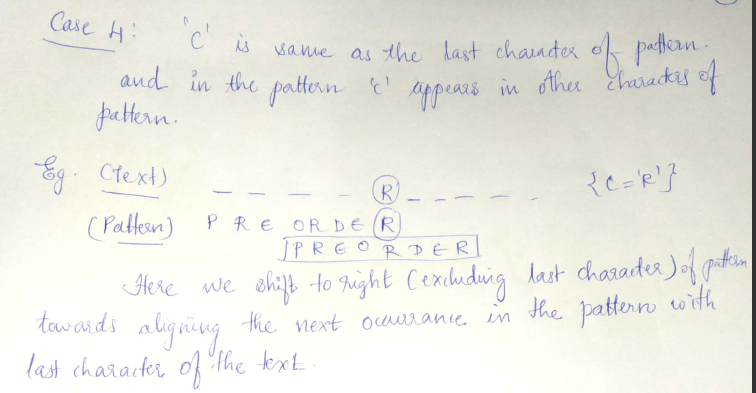 Case 4: 'C' is same as the last character of pattern.
and in the pattern 'c' appears in other characters of
pattern.
Eg. (Text) _ _ _ _ _ R _ _ _ _ _ {C='R'}
(Pattern) P R E O R D E R
P R E O R D E R
Here we shift to right (excluding last character) of pattern
towards aligning the next occurrance in the pattern with
last character of the text.